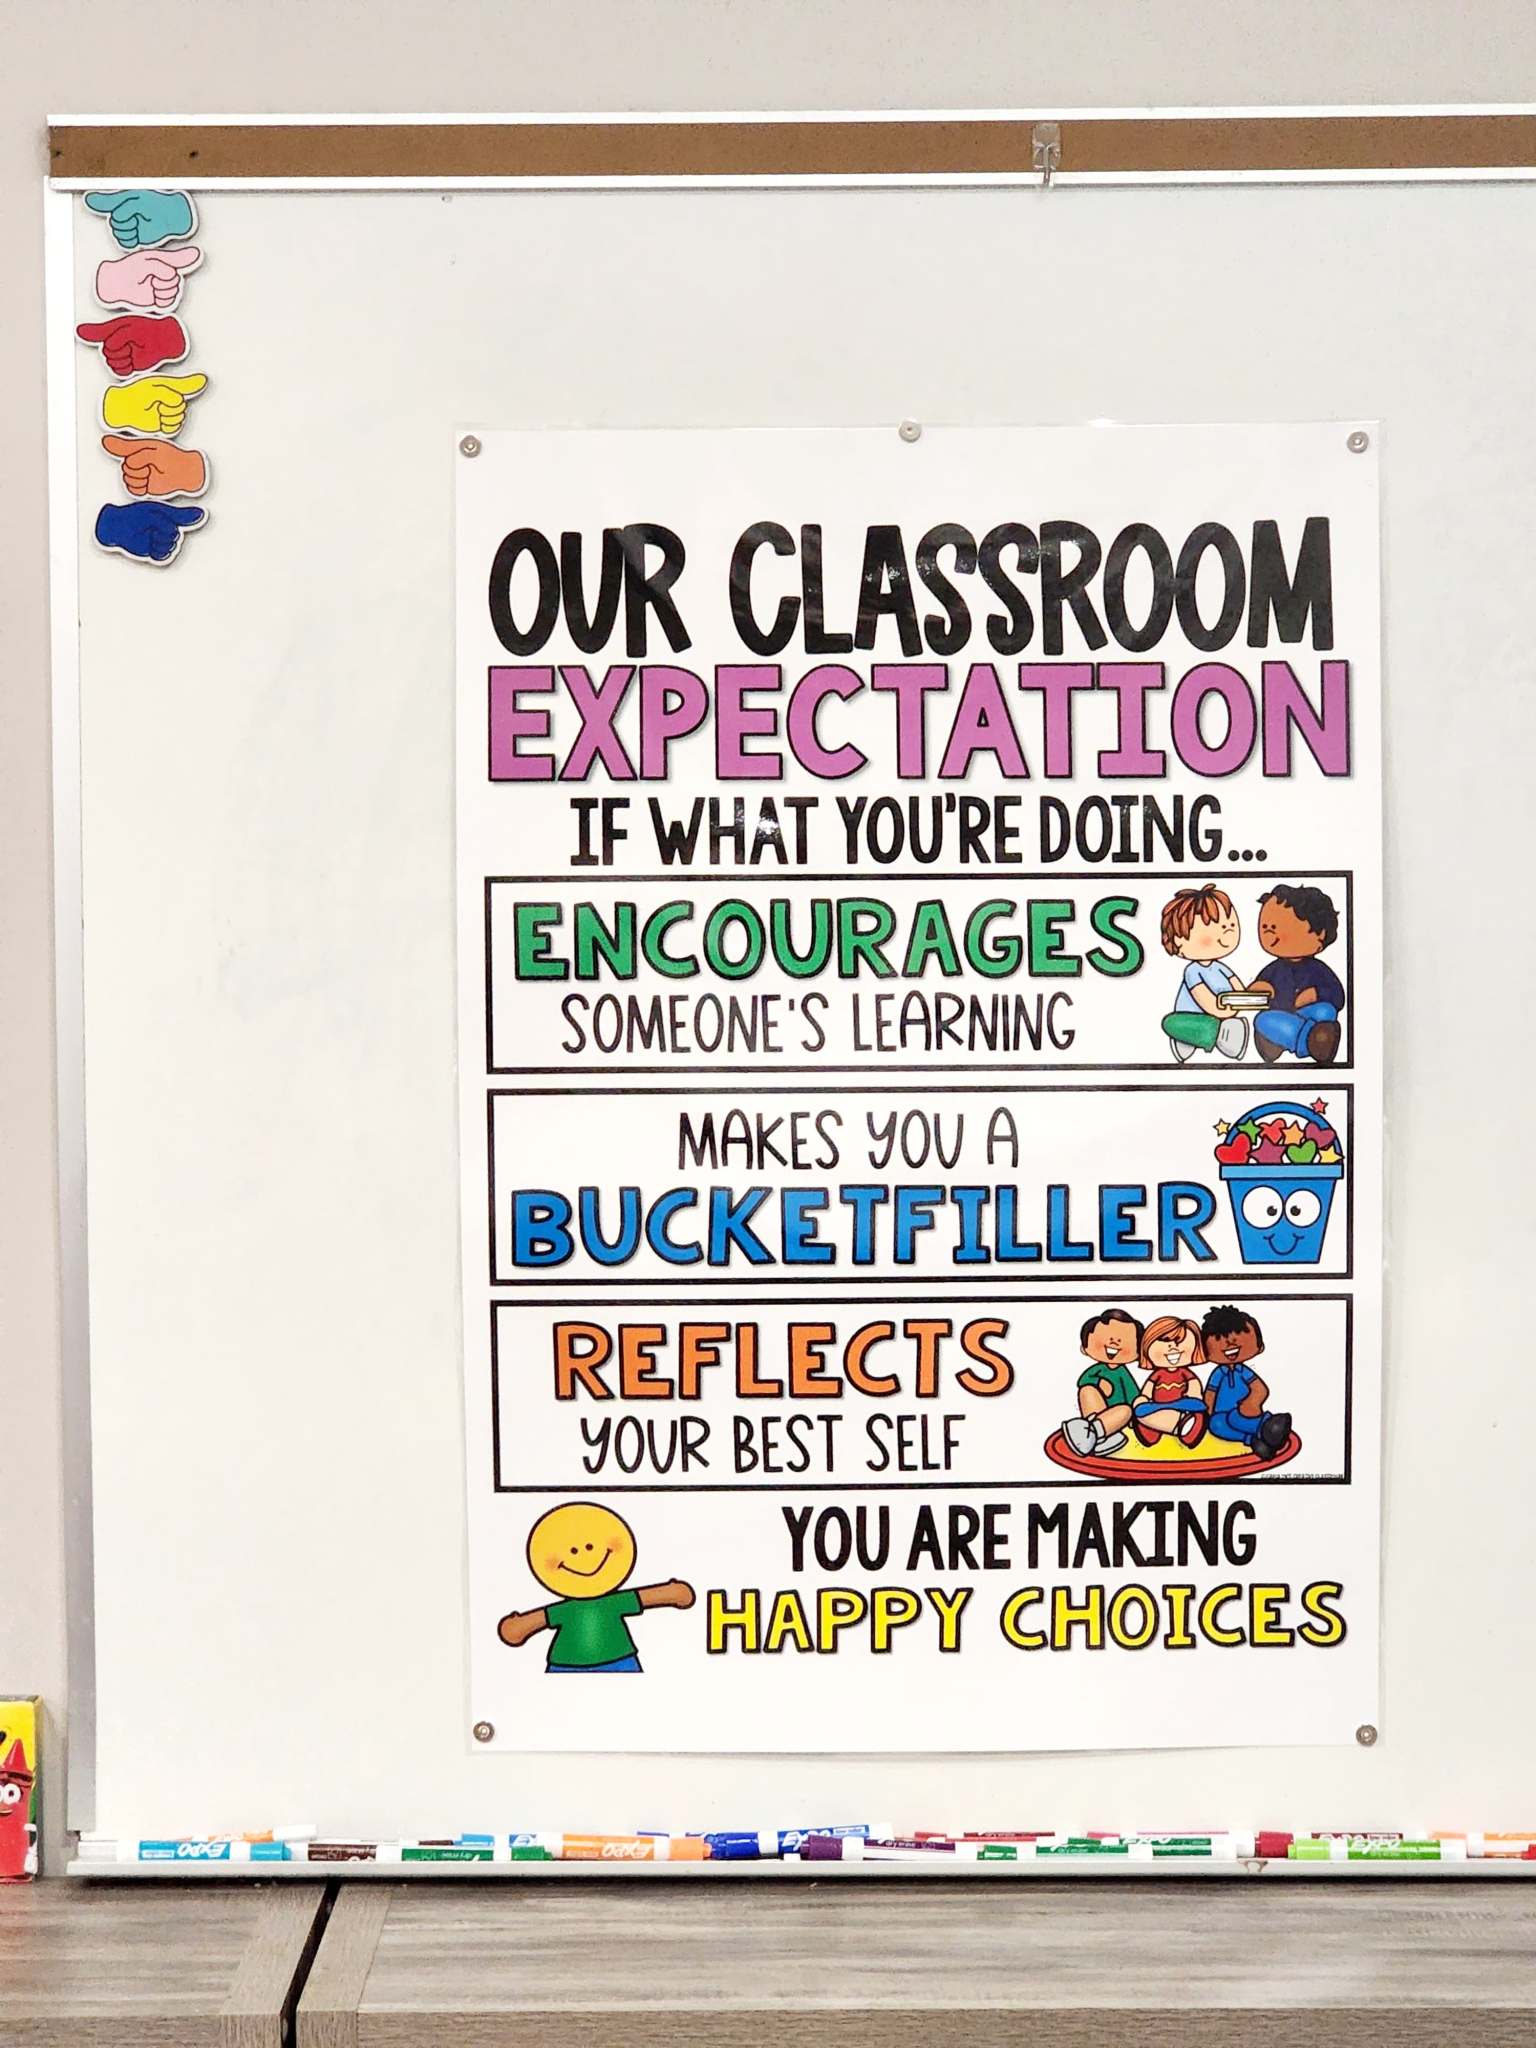 OUR CLASSROOM
EXPECTATION
IF WHAT YOU'RE DOING...
ENCOURAGES
SOMEONE'S LEARNING
MAKES YOU A
BUCKETFILLER
REFLECTS
YOUR BEST SELF
YOU ARE MAKING
HAPPY CHOICES
EXPO
EXPO